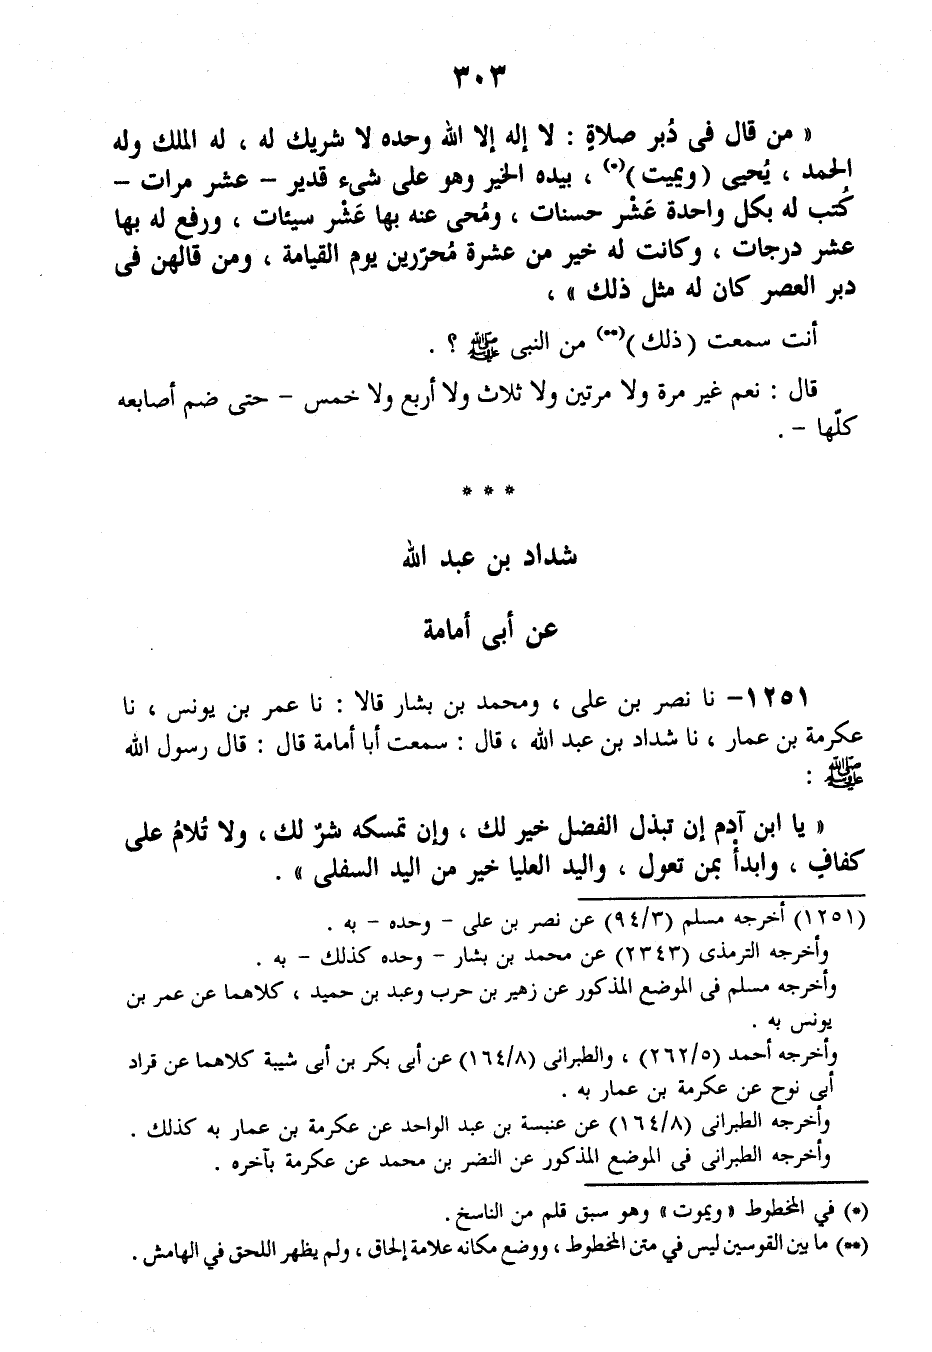 ٣٠٣
« من قال فى دُبر صلاةٍ : لا إله إلا الله وحده لا شريك له ، له الملك وله
الحمد ، يُحيى (ويميت)(*) ، بيده الخير وهو على شىء قدير – عشر مرات –
كُتب له بكل واحدة عَشْر حسنات ، ومُحى عنه بها عَشْر سيئات ، ورفع له بها
عشر درجات ، وكانت له خير من عشرة مُحرّرين يوم القيامة ، ومن قالهن فى
دبر العصر كان له مثل ذلك » ،
أنت سمعت (ذلك)(**) من النبى ﷺ ؟ .
قال : نعم غير مرة ولا مرتين ولا ثلاث ولا أربع ولا خمس – حتى ضم أصابعه
كلّها – .
* * *
شداد بن عبد الله
عن أبى أمامة
١٢٥١– نا نصر بن على ، ومحمد بن بشار قالا : نا عمر بن يونس ، نا
عكرمة بن عمار ، نا شداد بن عبد الله ، قال : سمعت أبا أمامة قال : قال رسول الله
ﷺ :
« يا ابن آدم إن تبذل الفضل خير لك ، وإن تمسكه شرٌ لك ، ولا تُلامُ على
كفافٍ ، وابدأْ بمن تعول ، واليد العليا خير من اليد السفلى » .
(١٢٥١) أخرجه مسلم (٩٤/٣) عن نصر بن على – وحده – به .
وأخرجه الترمذى (٢٣٤٣) عن محمد بن بشار – وحده كذلك – به .
وأخرجه مسلم فى الموضع المذكور عن زهير بن حرب وعبد بن حميد ، كلاهما عن عمر بن
يونس به .
وأخرجه أحمد (٢٦٢/٥) ، والطبرانى (١٦٤/٨) عن أبى بكر بن أبى شيبة كلاهما عن قراد
أبى نوح عن عكرمة بن عمار به .
وأخرجه الطبرانى (١٦٤/٨) عن عنبسة بن عبد الواحد عن عكرمة بن عمار به كذلك .
وأخرجه الطبرانى فى الموضع المذكور عن النضر بن محمد عن عكرمة بآخره .
(*) في المخطوط « ويموت » وهو سبق قلم من الناسخ .
(**) ما بين القوسين ليس في متن المخطوط ، ووضع مكانه علامة إلحاق ، ولم يظهر اللحق في الهامش .